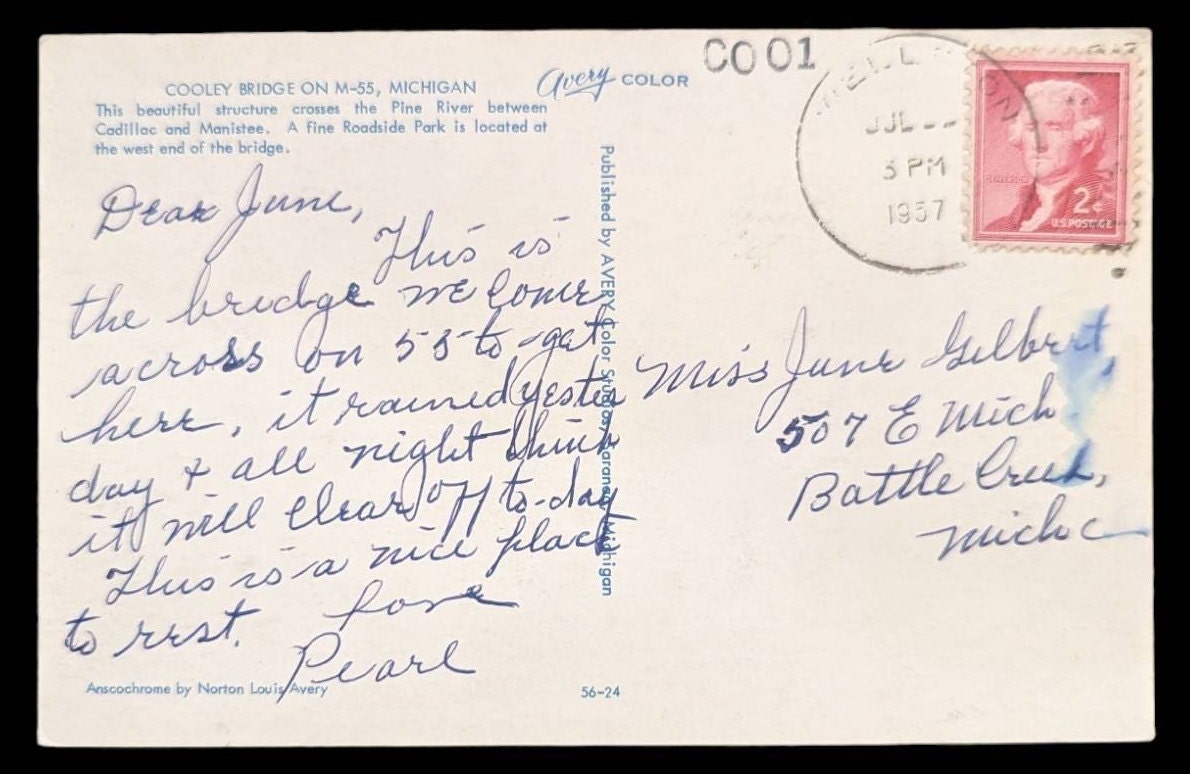 COOLEY BRIDGE ON M-55, MICHIGAN
This beautiful structure crosses the Pine River between
Cadillac and Manistee. A fine Roadside Park is located at
the west end of the bridge.
Avery COLOR
CO 01
JUL
3 PM
1957
JEFFERSON
2¢
U.S. POSTAGE
Dear June,
This is
the bridge we come
across on 55 to get
here, it rained yester
day & all night think
it will clear off to-day
This is a nice place
to rest. Love
Pearl
Published by AVERY Color Studios, Michigan
Miss June Gilbert,
507 E Mich
Battle Creek,
Mich
Anscochrome by Norton Louis Avery
56-24